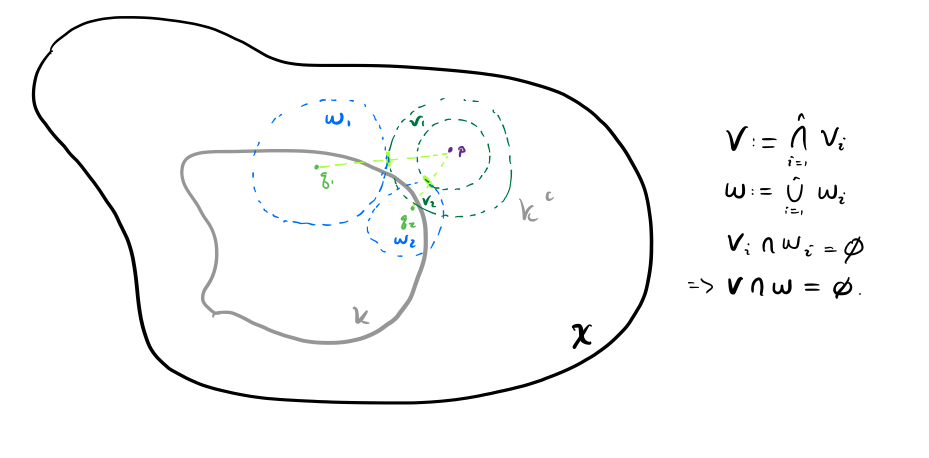 W₁
V₁
p
q₁
V₂
q₂
W₂
Kᶜ
K
X
V := ∩ᵢ₌₁ⁿ Vᵢ
W := ∪ᵢ₌₁ⁿ Wᵢ
Vᵢ ∩ Wᵢ = ∅
=> V ∩ W = ∅.